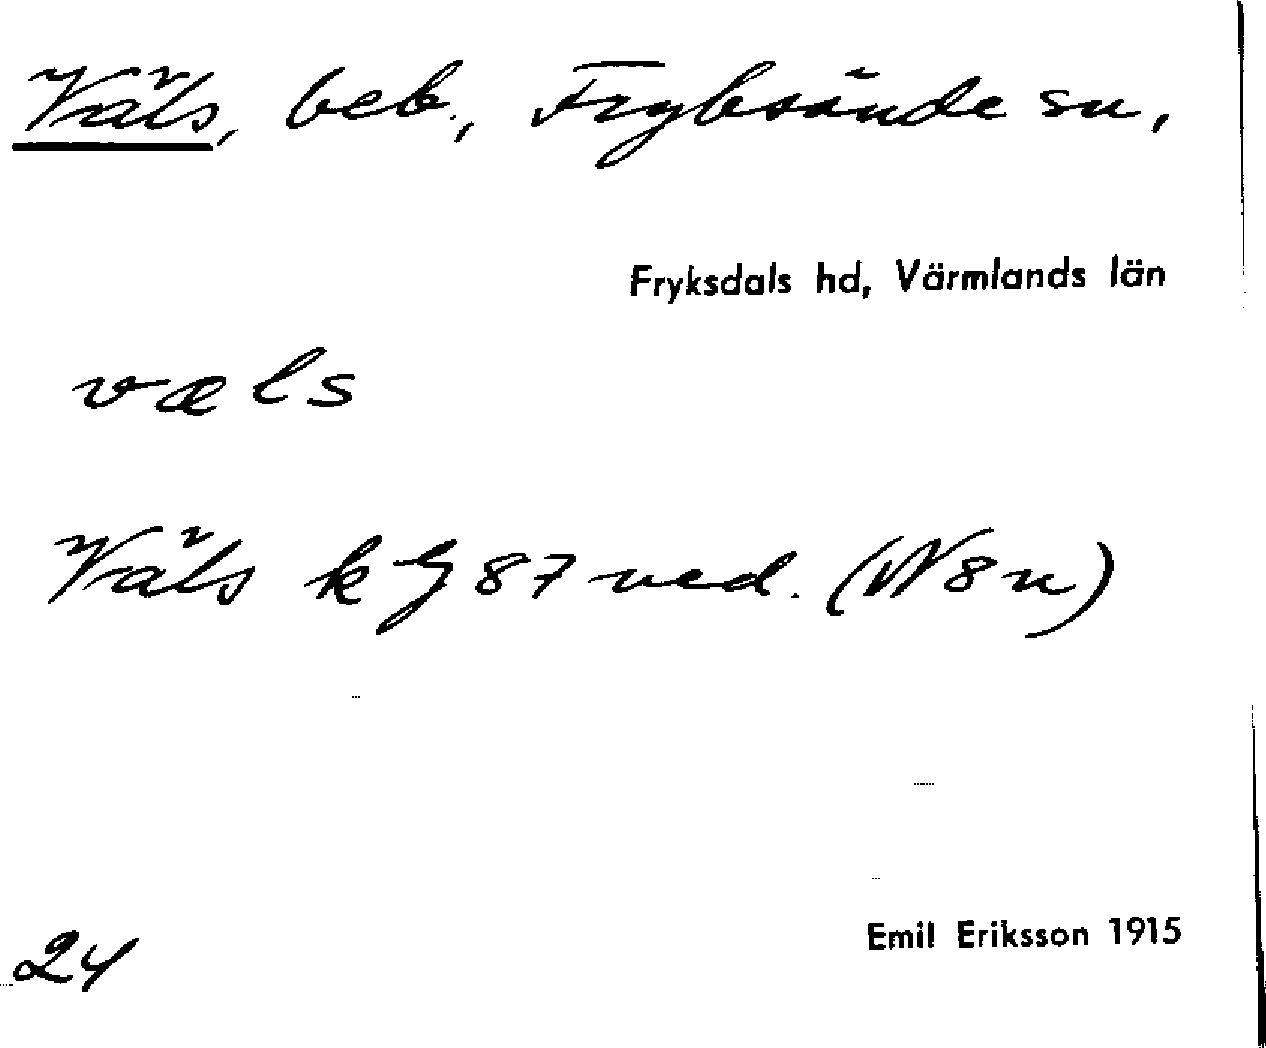 Väls, beb., Fryksände sn,
Fryksdals hd, Värmlands län
væls
Väls k G 87 ned. (N 8 n)
24
Emil Eriksson 1915